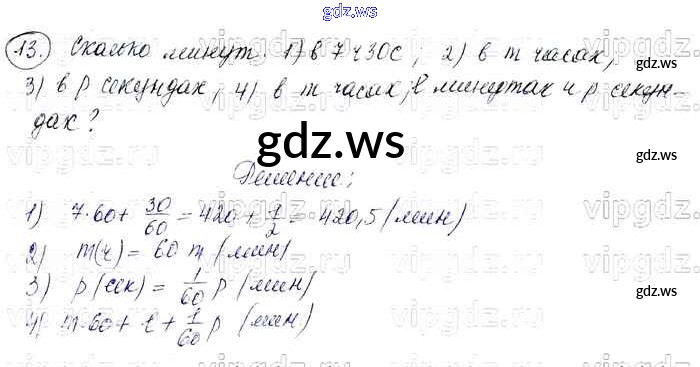 gdz.ws
13. Сколько минут: 1) в 7 ч 30 с; 2) в m часах;
3) в p секундах; 4) в m часах, l минутах и p секун-
дах?
gdz.ws
Решение:
1) 7·60 + 30/60 = 420 + 1/2 = 420,5 (мин)
2) m(ч) = 60 m (мин)
3) p (сек) = 1/60 p (мин)
4) m·60 + l + 1/60 p (мин)
gdz.ws